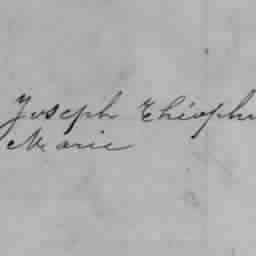 Joseph Théoph
Marie